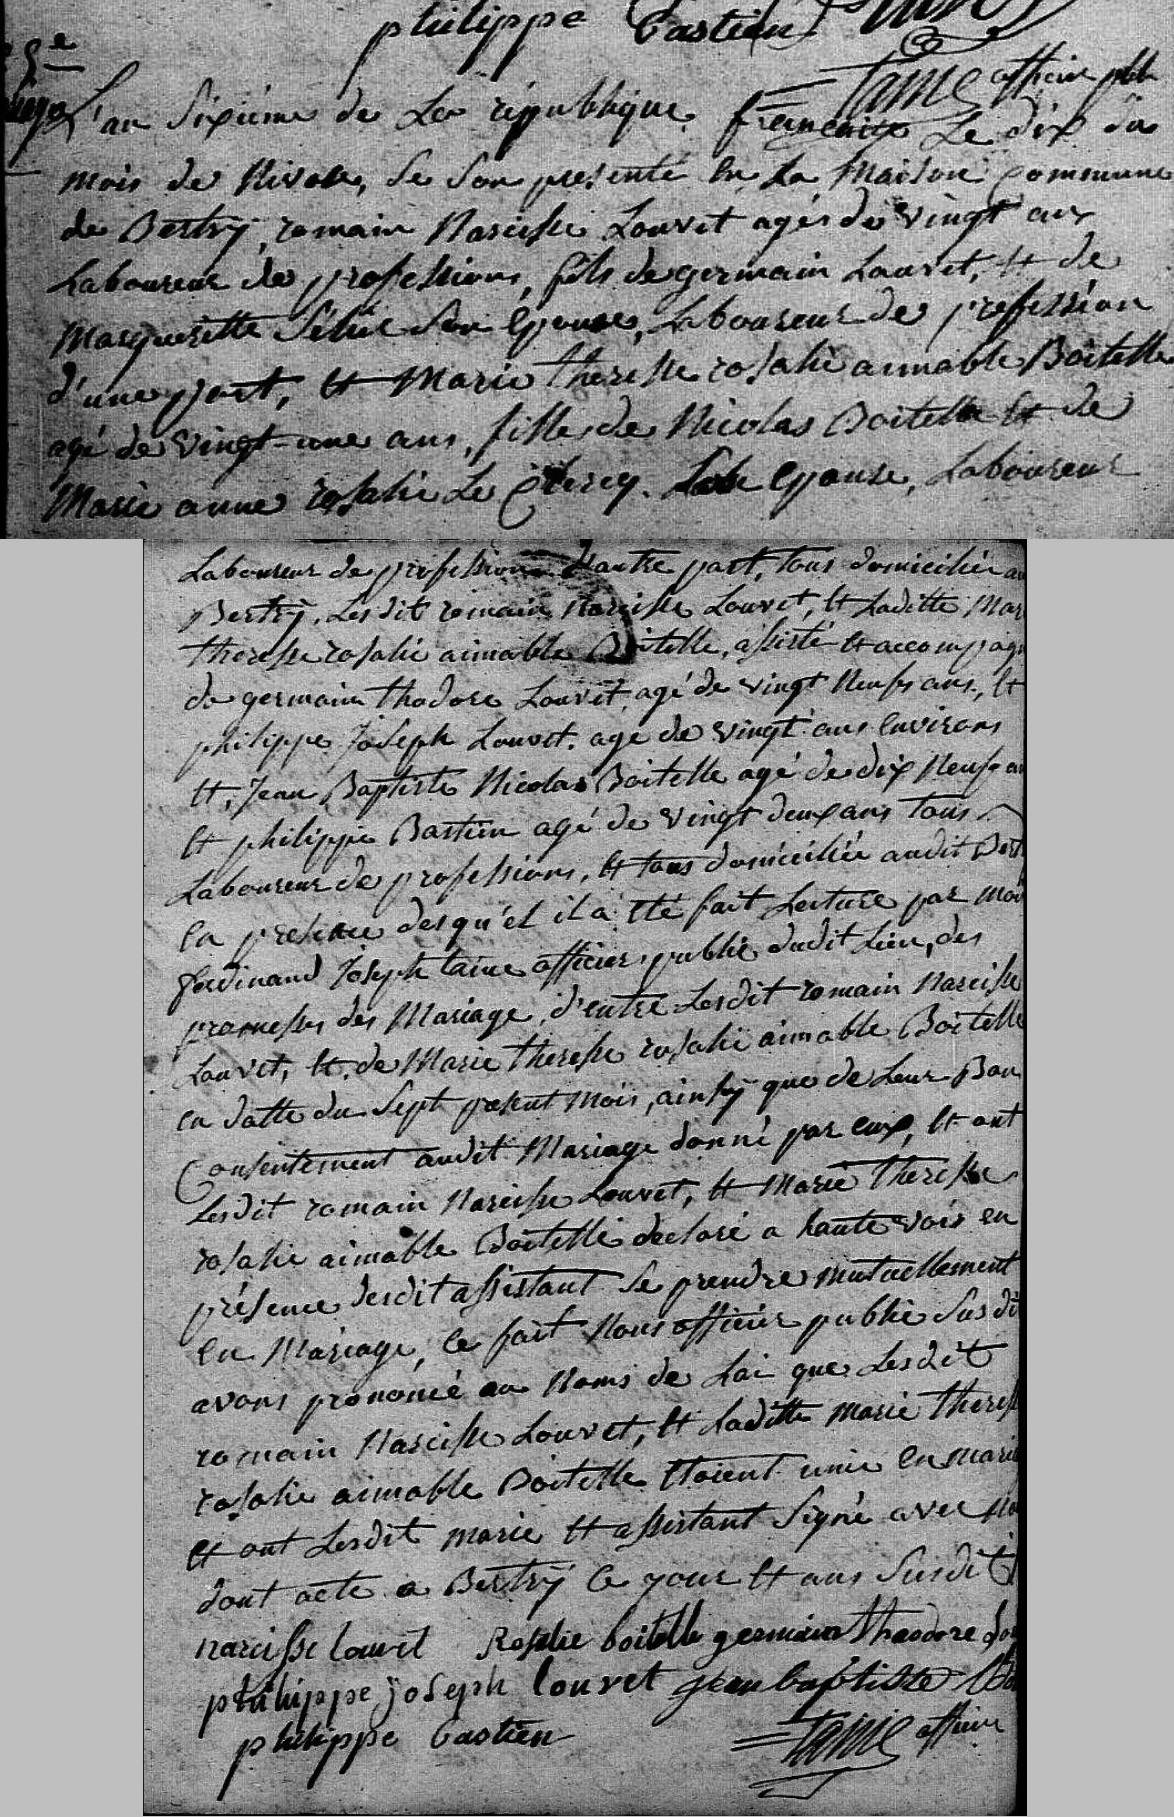 philippe Bastien
5e
L'an Sixième de La république francaise Le dix du
taine officier publi
mois de Nivose, Se Son presenté En La Maison Commune
de Bertry, romain Narcisse Louvet agés de vingt ans
Laboureur de professions, fils de germain Louvet, Et de
Margueritte Son Epouse, Laboureur de proffession
d'une part, Et Marie theresse rosalie aimable Boitelle
agé de vingt-une ans, fille de Nicolas Boitelle Et de
Marie anne rosalie Le Clercq. Epouse, Laboureur
Laboureur de profession d'autre part, tous domiciliés au
Bertry. Lesdit romain Narcisse Louvet, Et Laditte Mar
theresse rosalie aimable Boitelle, assisté Et accompagn
de germain thodore Louvet, agé de vingt Neufs ans, Et
philippe Joseph Louvet. age de vingt ans Environs
Et, Jean Baptiste Nicolas Boitelle agé de dix Neufs an
Et philippe Bastien agé de vingt deux ans tous
Laboureur de professions, Et tous domiciliés audit Bert
En presence desqu'el il a Eté fait Lecture par moi
ferdinand Joseph taine officier public dudit Lieu, des
promesses des Mariage, d'entre Lesdit romain Narcisse
Louvet, Et. de Marie theresse rosalie aimable Boitelle
En datte du Sept present mois, ainsy que de Leur Bon
Consentement audit Mariage donné par Eux, Et ont
Lesdit romain Narcisse Louvet, Et Marie theresse
rosalie aimable Boitelle declaré a haute vois en
présence desdit assistant Se prendre mutuellement
En Mariage, Ce fait Nous officier public Susdit
avons prononcé au Noms de Loi que Lesdit
romain Narcisse Louvet, Et Laditte marie theress
rosalie aimable Boitelle Etoient unie En maria
Et ont Lesdit marie Et assistant Signé avec No
dont acte a Bertry Ce jour Et ans Susdit
narcisse louvet Rosalie boitelle germain theodore Lou
philippe joseph louvet jean baptiste
philippe bastien taine officier